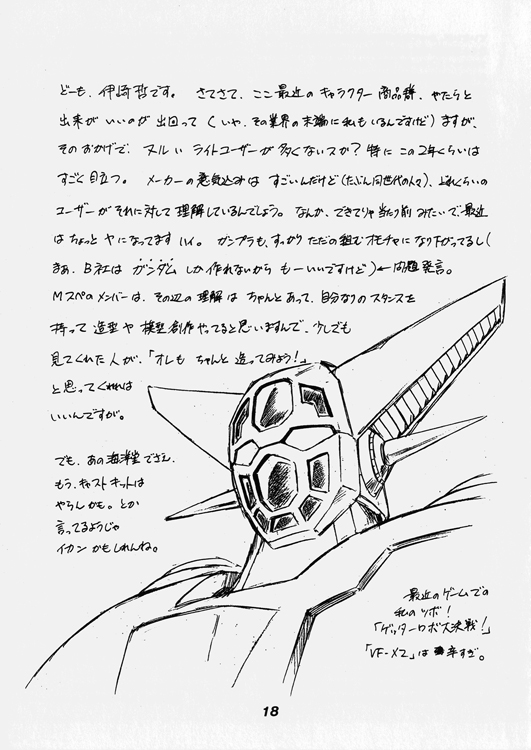 どーも、伊崎哲です。 さてさて、ここ最近の キャラクター 商品群、やたらと
出来が いいのが 出回って (いや、その業界の末端に私もいるんですけど) ますが、
そのおかげで、 ヌルい ライトユーザーが 多くないスか? 特に この2年くらいは
すごく 目立つ。 メーカーの 意気込みは すごいんだけど (たぶん同世代の人々)、どれくらいの
ユーザーが それに対して 理解しているんでしょう。 なんか、できてりゃ 当たり前 みたいで、最近
は ちょっと ヤになってます ハイ。 ガンプラも、すっかり ただの 組むオモチャに なり下がってるし (
まぁ、B社は ガンダム しか 作れないから もーいいですけど) ←問題発言。
Mスペの メンバーは、その辺の 理解は ちゃんとあって、自分なりの スタンスを
持って 造型 や 模型創作やってると思いますんで、少しでも
見てくれた 人が、「オレも ちゃんと 造ってみよう!」
と思ってくれれば
いいんですが。
でも、あの海洋堂でさえ、
もう、キャストキットは
やらしかも。とか
言ってるようじゃ
イカン かもしれんね。
最近のゲームでの
私のツボ!
「ゲッターロボ大決戦!」
「VF-X2」は 辛すぎ。
18